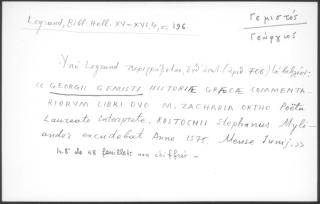 Legrand, Bibl. Hell. XV-XVI, 4, σ. 196.
Γεμιστός
Γεώργιος
Ὑπό Legrand περιγράφεται, (ἀριθ. 706) τό βιβλίον:
« GEORGII GEMISTI HISTORIÆ GRÆCÆ COMMENTA-
RIORVM LIBRI DVO M. ZACHARIA ORTHO Poëta
Laureato interprete. ROSTOCHII Stephanus Myli-
ander excudebat Anno 1575. Mense Iunij.»
in 8° de 48 feuillets non chiffrés -